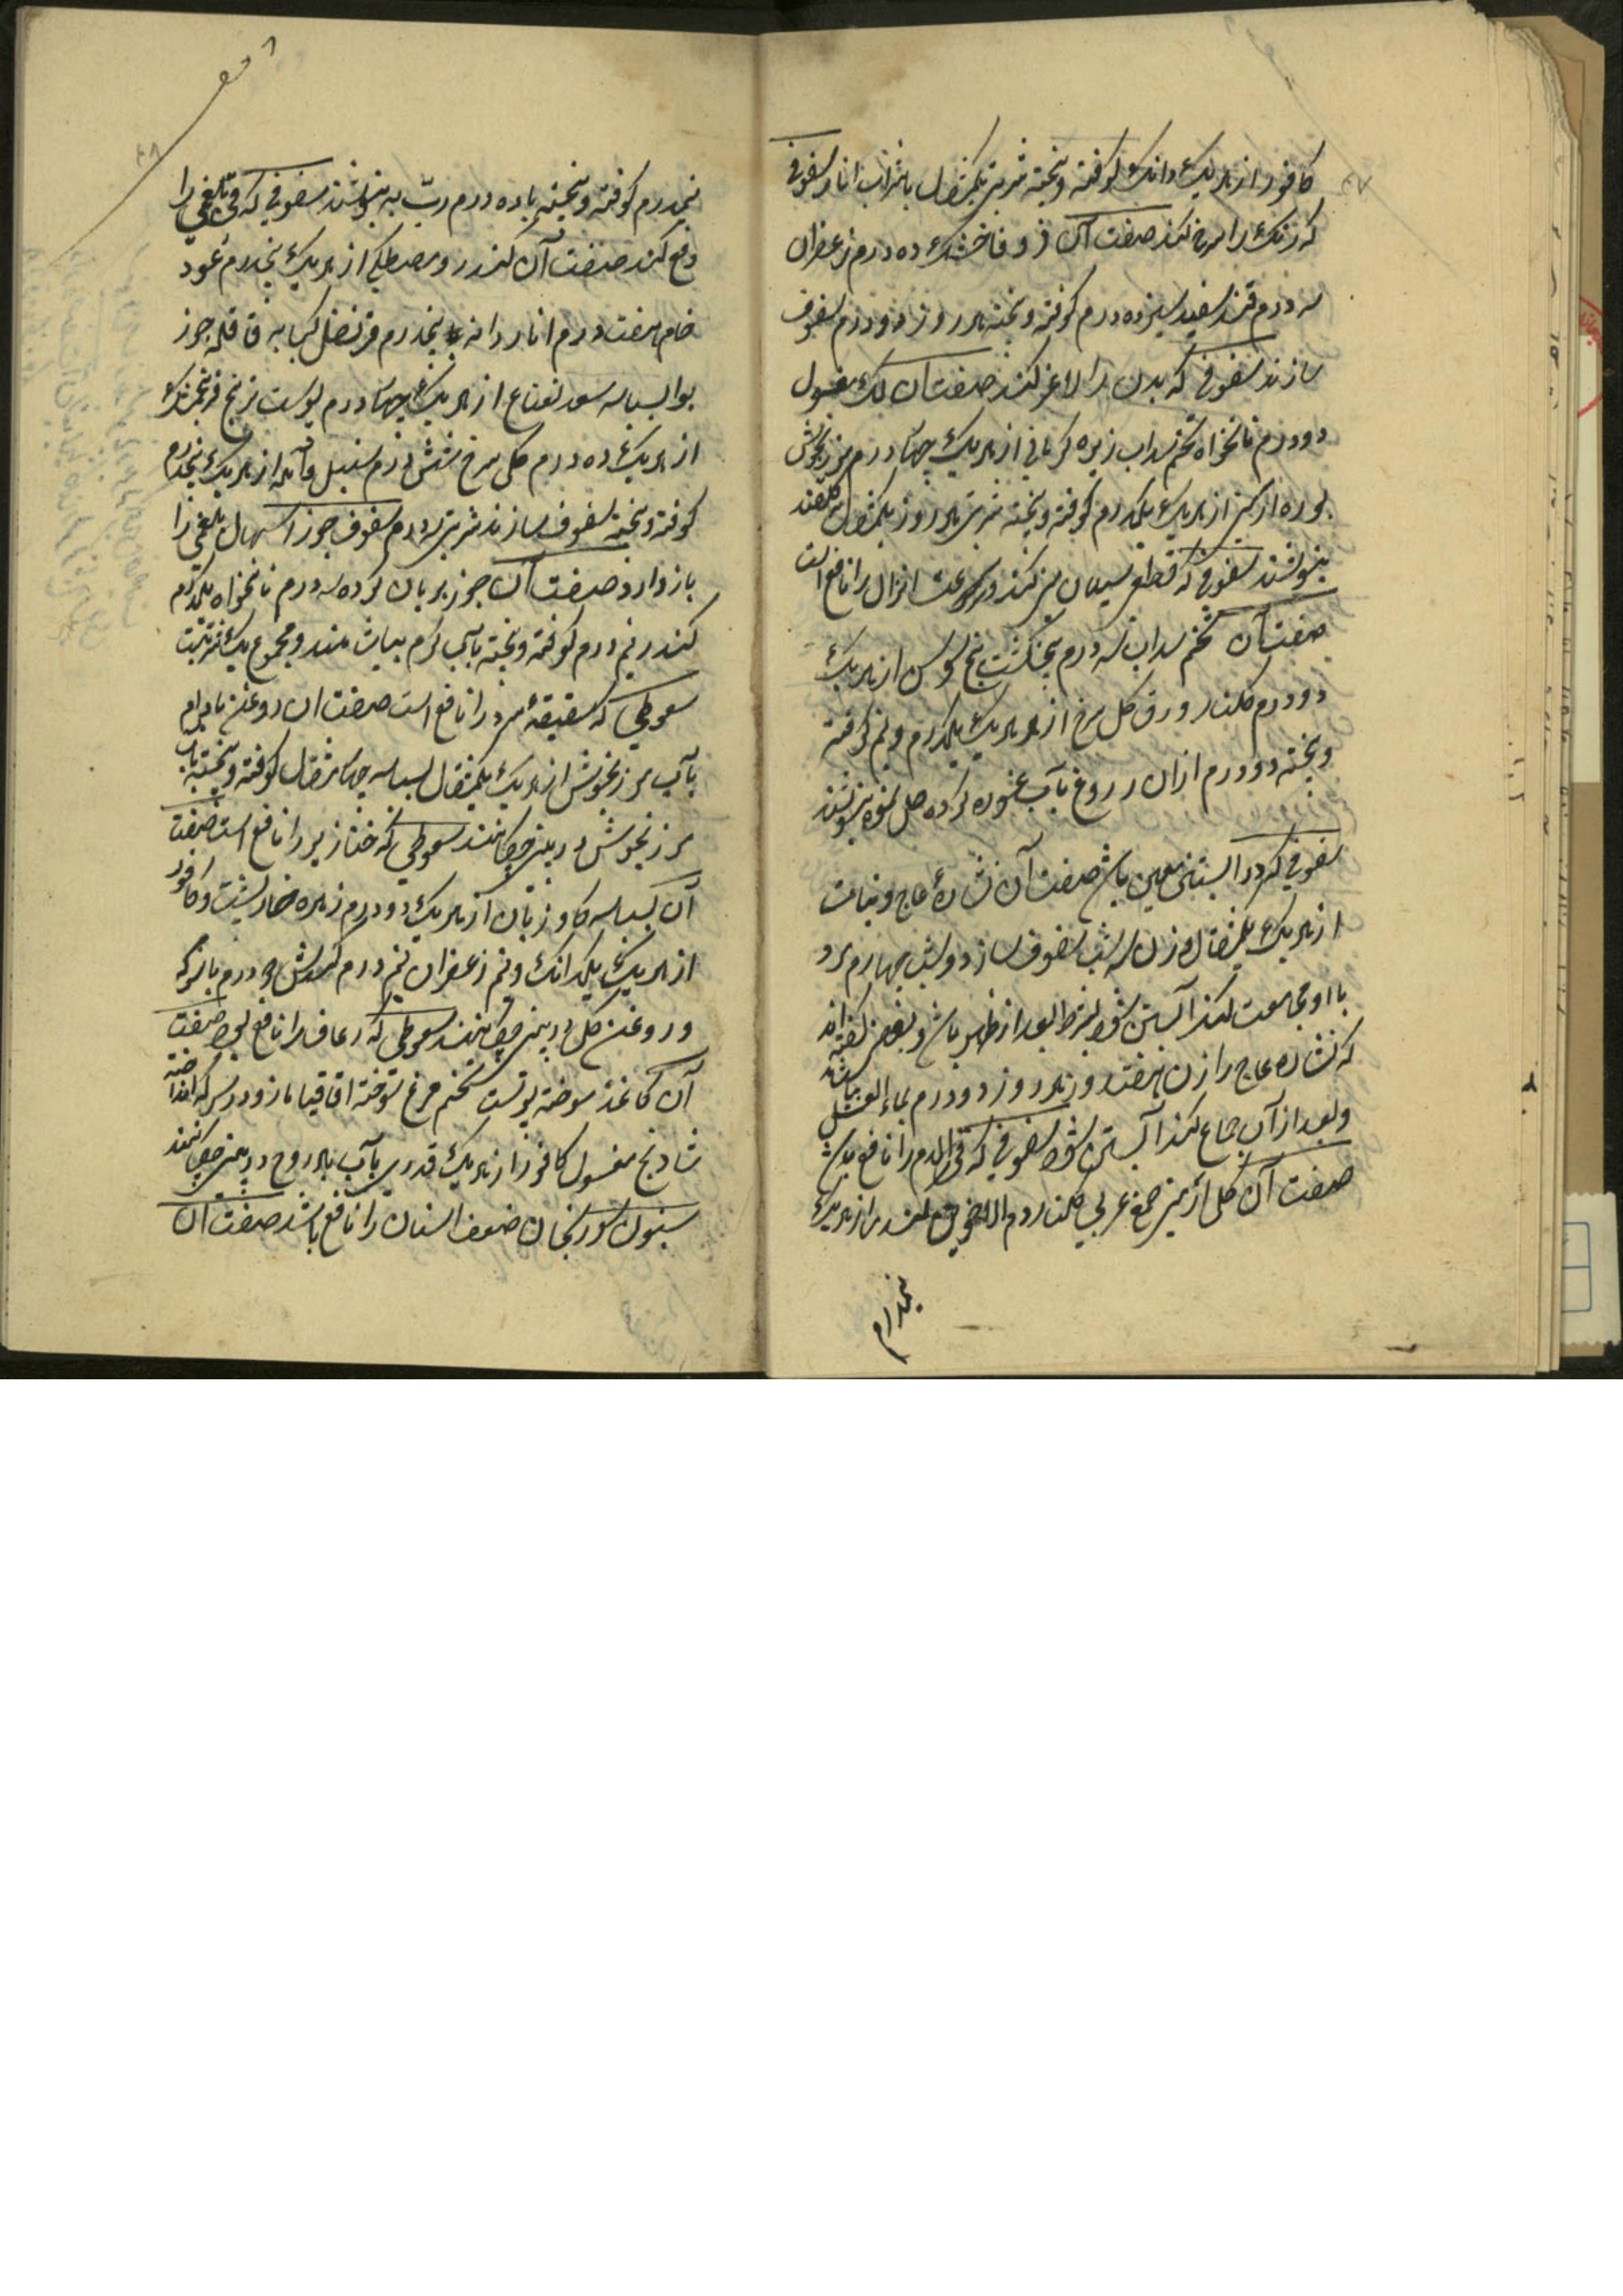 کافور از هر یک دانک کوفته و بیخته شربتی یکمثقال با شراب انار سفوفی
که رنک را سرخ کند صفت آن زوفا خشک ده درم زعفران
سه درم قند سفید سیزده درم کوفته و بیخته هر روز دو درم سفوف
سازند سفوفی که بدن را لاغر کند صفت آن لک مغسول
دو درم نانخواه تخم سداب زیره کرمانی از هر یک چهار درم مرزنجوش
بوره ارمنی از هر یک یکدرم کوفته و بیخته شربتی هر روز یکمثقال
بنوشند سفوفی که قطع سیلان منی کند و سرعت انزال را نافع است
صفت آن تخم سداب سه درم پنجنکشت بیخ سوسن از هر یک
دو درم کلنار ورق کل سرخ از هر یک یکدرم و نیم کوفته
و بیخته دو درم ازان در دوغ یا آب غوره کرده حل نموده بنوشند
سفوفی که در آبستنی معین باشد صفت آن نشارهٔ عاج و نبات
از هر یک یکمثقال زن سه شب سفوف سازد و شب چهارم مرد
با او مجامعت کند آبستن شود بشرط بعد از طهر باشد و بعضی کفته اند
که نشاره عاج را زن هفت روز هر روز دو درم بماء العسل بیاشامد
و بعد از آن جماع کند آبستن شود سفوفی که قی الدم را نافع باشد
صفت آن کل ارمنی صمغ عربی کلنار دم الاخوین کندر از هر یک
پنجدرم
پنجدرم کوفته و بیخته با ده درم ربّ به بنوشند سفوفی که قی بلغمی را
دفع کند صفت آن کندر و مصطکی از هر یک پنجدرم عود
خام هفت درم انار دانه پنجدرم قرنفل کبابه قاقله جوز
بوا بسباسه سعد نعناع از هر یک چهار درم پوست ترنج فرنجمشک
از هر یک ده درم کل سرخ شش درم سنبل و آمله از هر یک پنجدرم
کوفته و بیخته سفوف سازند شربتی دو درم سفوف جوز اسهال بلغمی را
باز دارد صفت آن جوز بریان کرده سه درم نانخواه یکدرم
کندر نیم درم کوفته و بیخته بآب کرم بیاشامند و مجموع یک شربتست
سعوطی که شقیقهٔ سرد را نافع است صفت ان روغن بادام
بآب مرزنجوش از هر یک یکمثقال بسباسه چهار مثقال کوفته و بیخته بآب
مرزنجوش در بینی چکانند سعوطی که خنازیر را نافع است صفت
آن بسباسه کاوزبان از هر یک دو درم زهره خارپشت و کافور
از هر یک یکدانک و نیم زعفران نیم درم کندش دو درم با سرکه
و روغن کل در بینی چکانند سعوطی که رعاف را نافع بود صفت
آن کاغذ سوخته پوست تخم مرغ سوخته اقاقیا مازو در سرکه انداخته
شادنج مغسول کافور از هر یک قدری بآب بادروج در بینی چکانند
سنون سورنجان ضعف اسنان را نافع باشد صفت آن